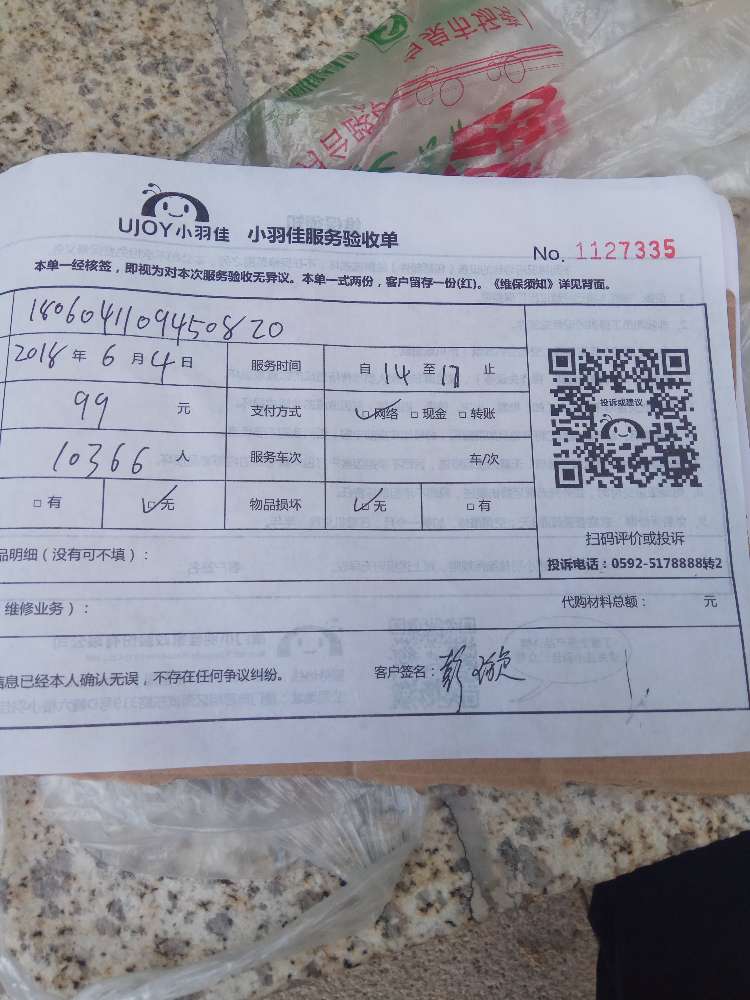 UJOY小羽佳 小羽佳服务验收单
No. 1127335
本单一经核签，即视为对本次服务验收无异议。本单一式两份，客户留存一份(红)。《维保须知》详见背面。
180604110945082０
2018 年 6 月 4 日 服务时间 自 14 至 17 止
99 元 支付方式 ☑网络 □现金 □转账
投诉或建议
10366 人 服务车次 车/次
□有 ☑无 物品损坏 ☑无 □有
扫码评价或投诉
品明细（没有可不填）：
投诉电话：0592-5178888转2
维修业务）： 代购材料总额： 元
信息已经本人确认无误，不存在任何争议纠纷。 客户签名：彭